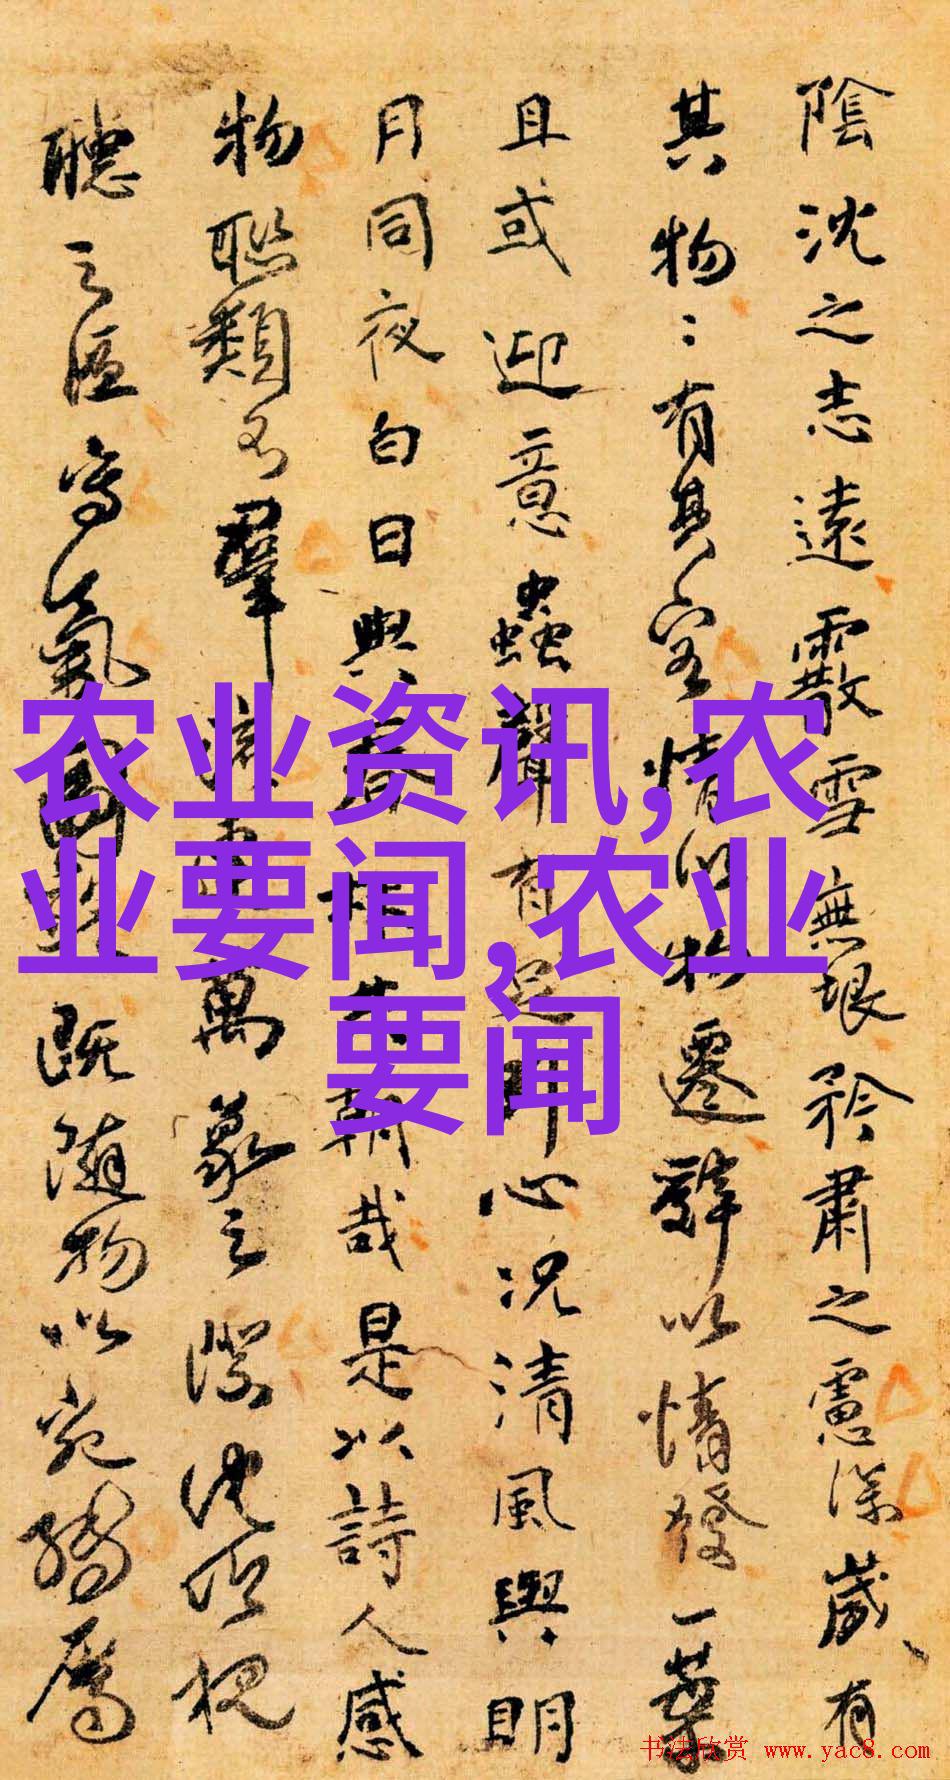 陰沈之志遠霰雪無垠矜肅之慮深歲有
其物〻有其容情以物遷辭以情發一葉
且或迎意蟲聲有足引心況清風與明
月同夜白日與春林共朝哉是以詩人感
物聯類不窮流連萬象之際沈吟視
聽之區寫氣圖貌既隨物以宛轉屬
农业资讯,农
业要闻,农业
要闻
书法欣赏 www.yac8.com